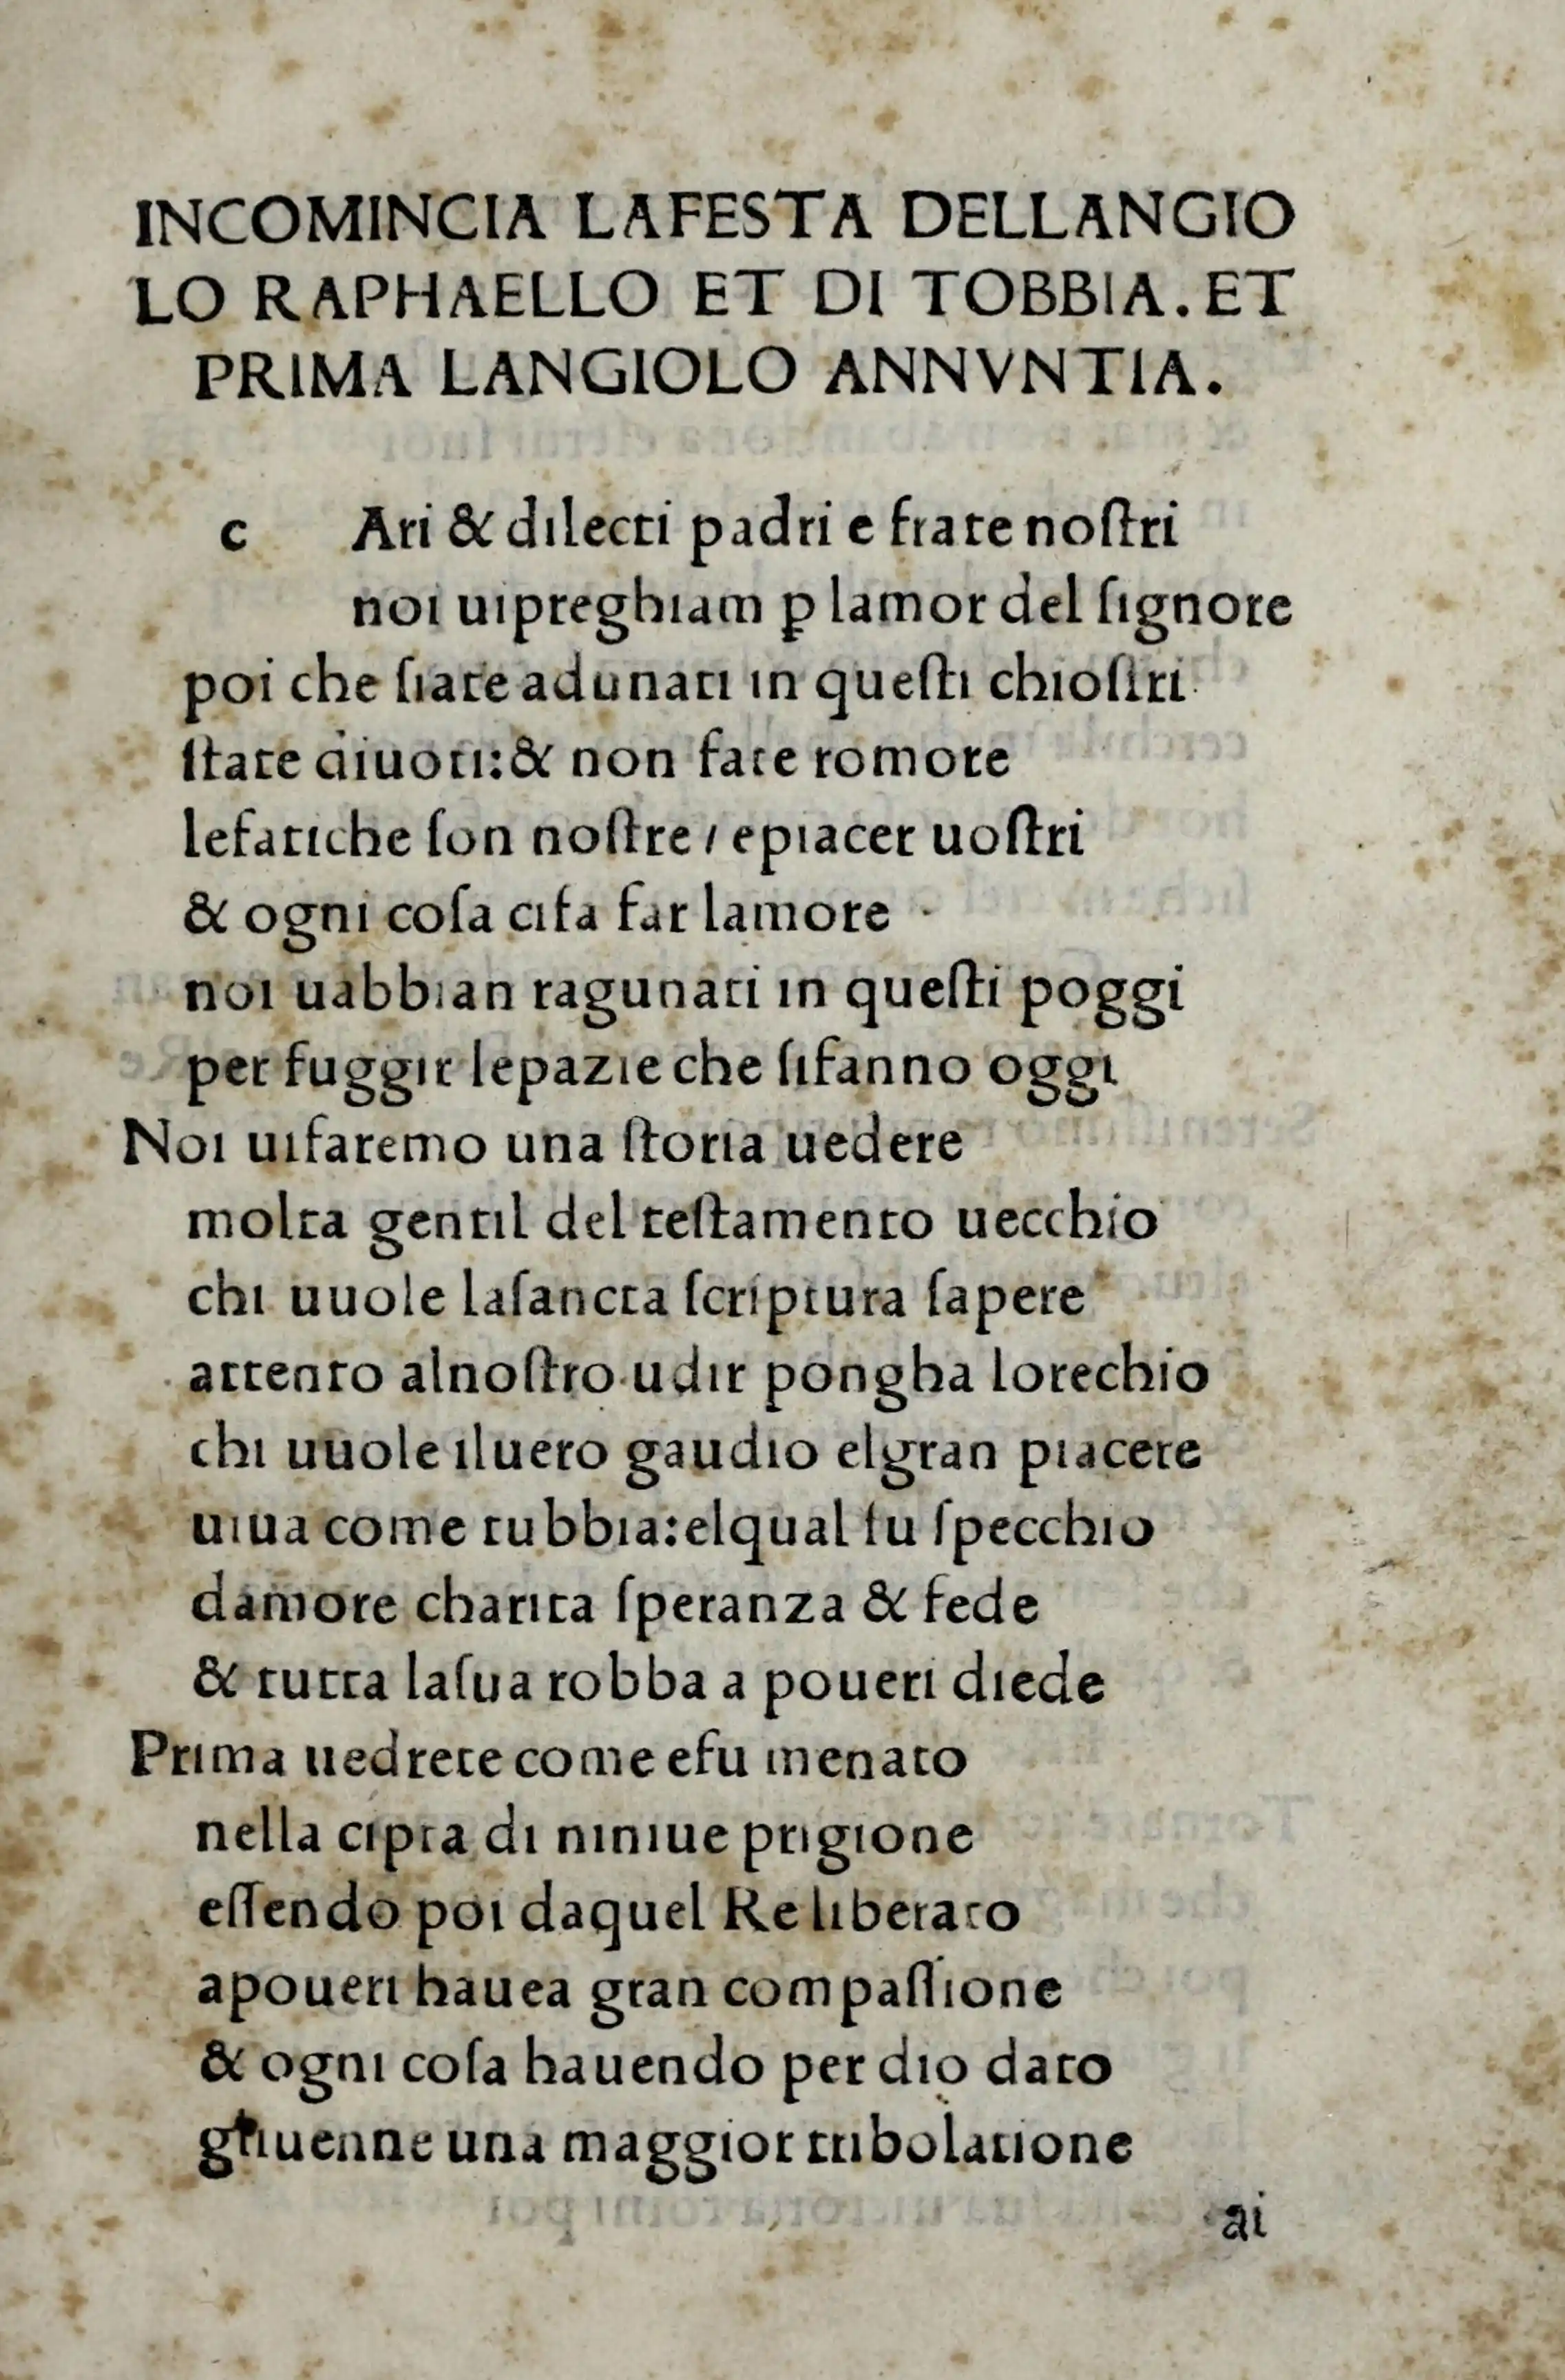 INCOMINCIA LAFESTA DELLANGIO
LO RAPHAELLO ET DI TOBBIA. ET
PRIMA LANGIOLO ANNVNTIA.
c Ari & dilecti padri e frate noſtri
noi uipreghiam ꝑ lamor del ſignore
poi che ſiate adunati in queſti chioſtri
ſtate diuoti: & non fate romore
lefatiche ſon noſtre / epiacer uoſtri
& ogni coſa cifa far lamore
noi uabbian ragunati in queſti poggi
per fuggir lepazie che ſifanno oggi
Noi uifaremo una ſtoria uedere
molta gentil del teſtamento uecchio
chi uuole laſancta ſcriptura ſapere
attento alnoſtro udir pongha lorechio
chi uuole iluero gaudio elgran piacere
uiua come tubbia: elqual fu ſpecchio
damore charita ſperanza & fede
& tutta laſua robba a poueri diede
Prima uedrete come efu menato
nella cipta di niniue prigione
eſſendo poi daquel Re liberato
apoueri hauea gran compaſſione
& ogni coſa hauendo per dio dato
gliuenne una maggior tribolatione
ai